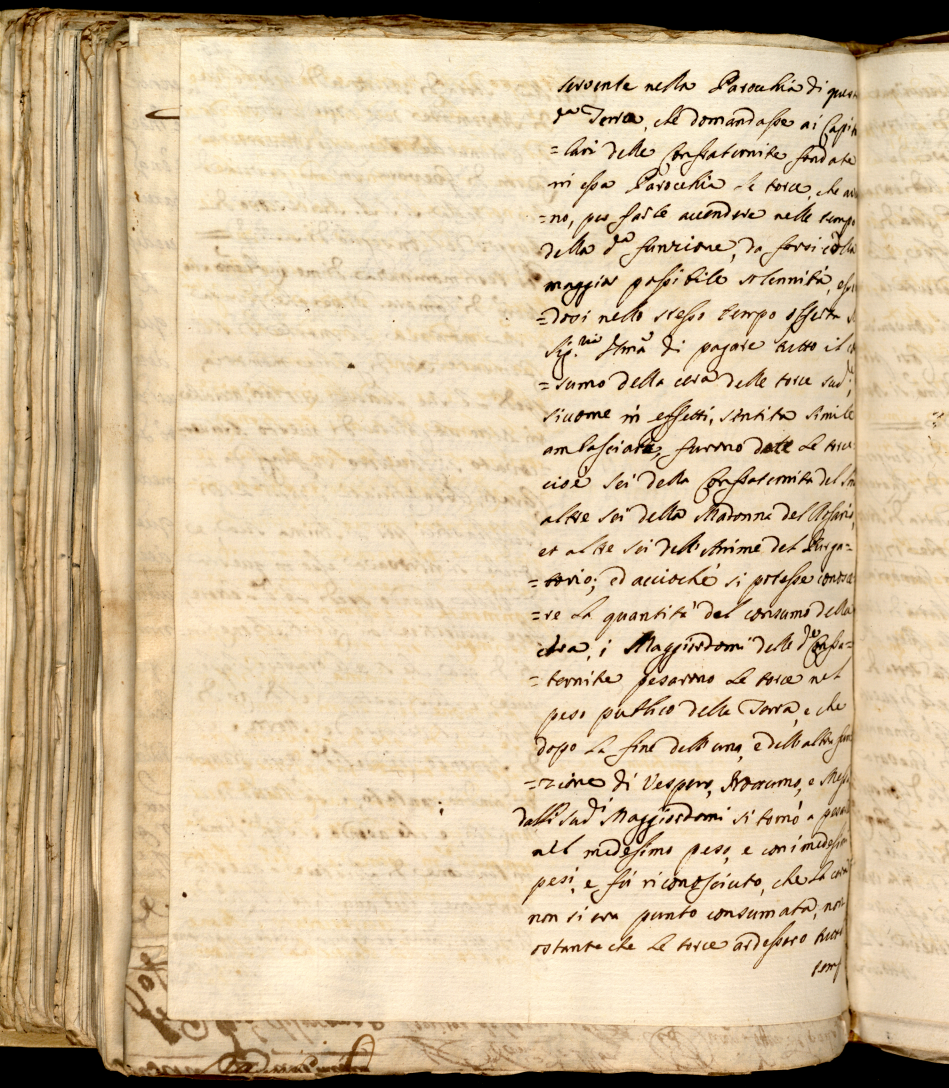 servente nella Parocchia di ques
d.ª Terra, che domandasse ai Capit
=lari delle Confraternite fondate
in essa Parocchia le torce, che av
=no, per farle accendere nelle tempo
della d.ª funzione, da farsi colla
maggior possibile solennità,
=dosi nello stesso tempo offerta
di pagare tutto il
=sumo della cera delle torce sud.e;
siccome in effetti, sentita simile
ambasciata, furono date le torce
cioè sei della Confraternita del
altre sei della Madonna del Rosario,
et altre sei dell'Anime del Purga=
=torio; ed acciochè si potesse conosce
=re la quantità del consumo della
cera, i Maggiordomi delle d.e Confra=
=ternite pesarono le torce nel
peso publico della Terra, e che
dopo la fine dell'una, e dell'altra fun
=zione di Vespero, Notturno, e Messa
dalli sud.i Maggiordomi si tornò a pesare
nel medesimo peso, e con i medesimi
pesi, e fù riconosciuto, che la cera
non si era punto consumata, non
ostante che le torce ardessero tutto
temp